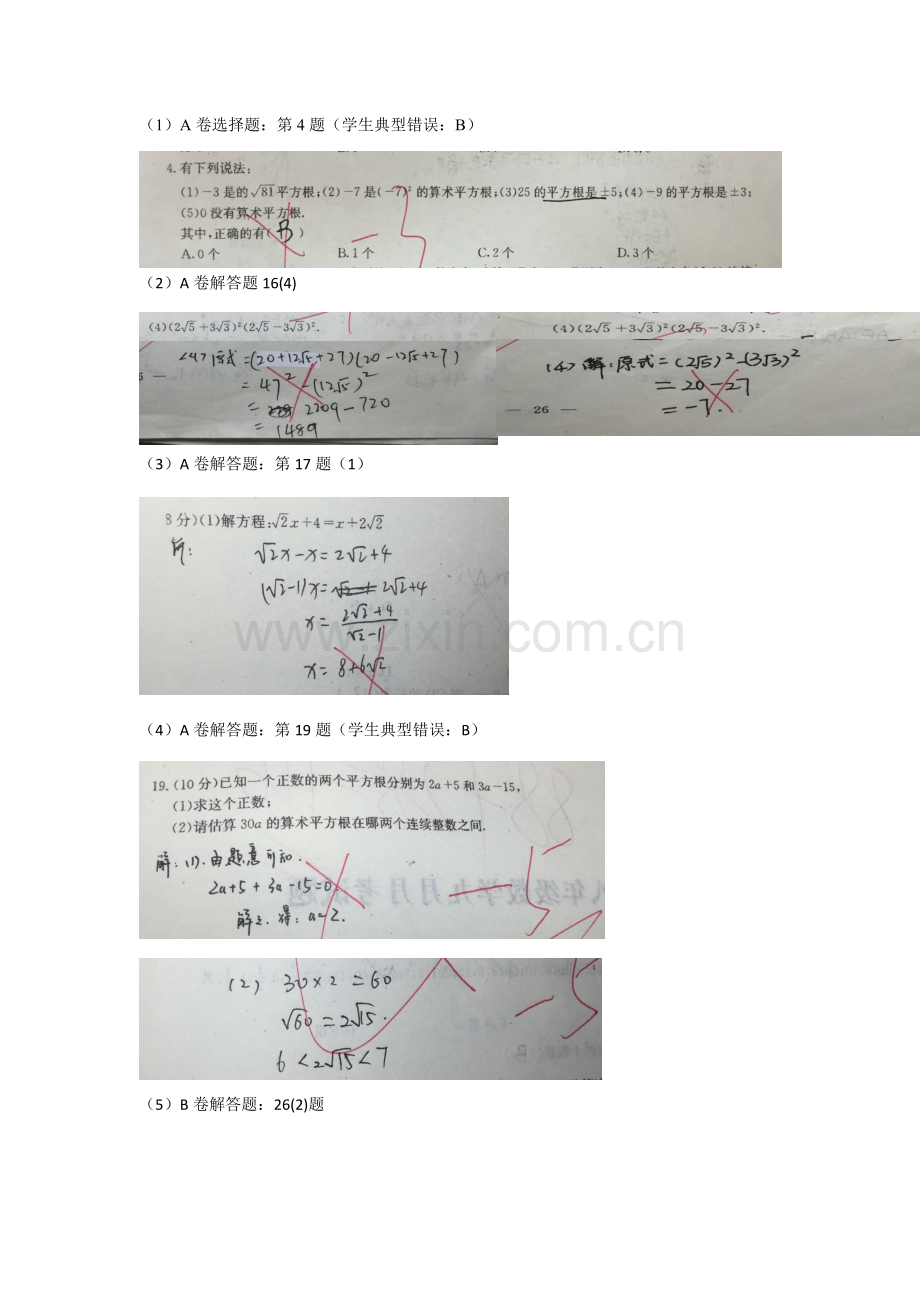 （1）A 卷选择题：第 4 题（学生典型错误：B）
4.有下列说法:
(1)-3 是的 √81平方根;(2)-7 是(-7)² 的算术平方根;(3)25 的平方根是±5;(4)-9 的平方根是±3;
(5)0 没有算术平方根.
其中,正确的有( B )
-3
A.0 个 B.1 个 C.2 个 D.3 个
（2）A 卷解答题 16(4)
(4)(2√5+3√3)²(2√5-3√3)².
<47原式=(20+12√5+27)(20-12√5+27)
= 47²-(12√5)²
= 2209-720
= 1489
(4)(2√5+3√3)²(2√5-3√3)².
(4)解:原式=(2√5)²-(3√3)²
=20-27
=-7.
— 26 —
（3）A 卷解答题：第 17 题（1）
8 分)(1)解方程:√2x+4=x+2√2
√2x-x=2√2+4
(√2-1)x=2√2+4
x=(2√2+4)/(√2-1)
x=8+6√2
www.zixin.com.cn
（4）A 卷解答题：第 19 题（学生典型错误：B）
19.(10 分)已知一个正数的两个平方根分别为 2a+5 和 3a-15,
(1)求这个正数;
(2)请估算 30a 的算术平方根在哪两个连续整数之间.
解:(1).由题意可知.
2a+5+3a-15=0.
解之.得:a=2.
-5
(2) 30×2=60
√60=2√15.
6<2√15<7
-5
（5）B 卷解答题：26(2)题